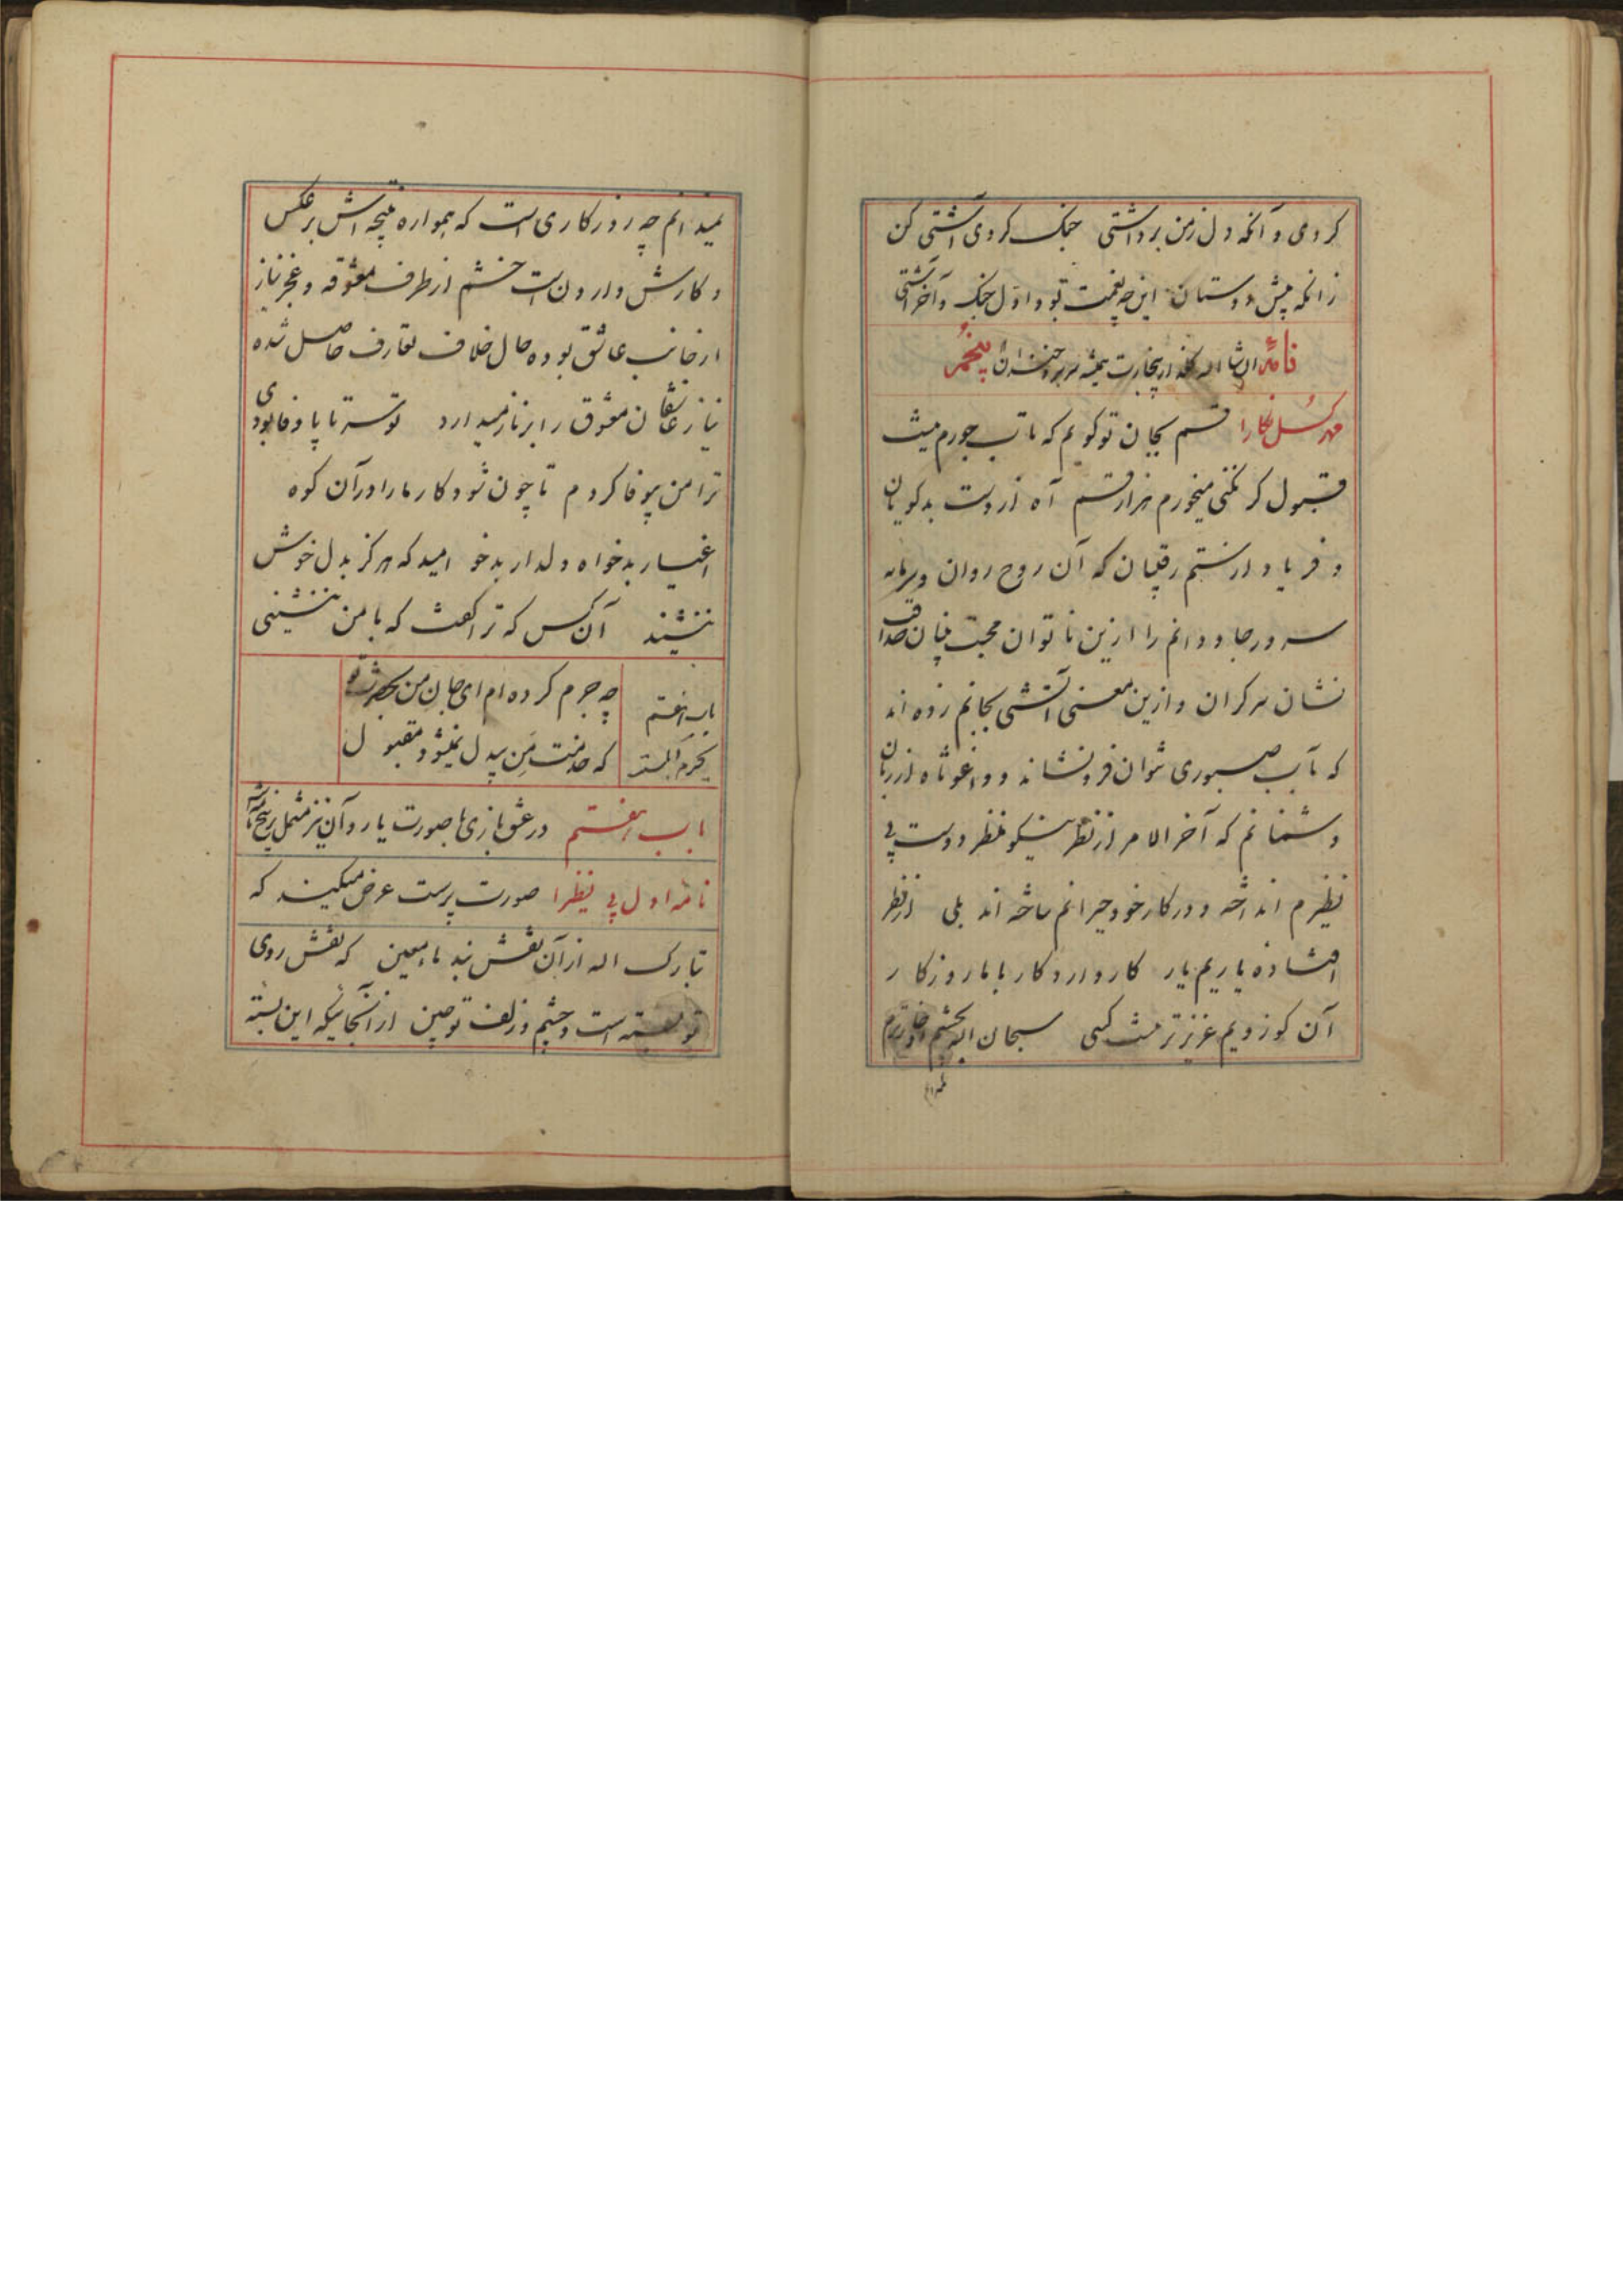 کردی و آنکه دل ز من برداشتی جنک کردی آشتی کن
زانکه پیش دوستان این چه نعمت بود اول جنک و آخر آشتی
نامهٔ پنجم
قسم بجان تو کویم که تاب جورم نیست
قبول کر نکنی میخورم هزار قسم آه از دست بدکویان
و فریاد از ستم رقیبان که آن روح روان و سرمایه
سرور جاودانم را ازین ناتوان محبت بنیان صداقت
نشان سرکران و ازین معنی آتشی بجانم زده اند
که بآب صبوری نتوان فرو نشاند و داغوثاه از زبان
دشمنانم که آخر الامر از نظر نیکو منظر دوست بی
نظیرم انداخته و در کار خود حیرانم ساخته اند بلی از نظر
افتاده یاریم یار کار دارد کار با ما روزکار
آن کو ز دویم عزیزتر نیست کسی سبحان الله
نمیدانم چه روزکاری است که همواره نتیجه اش بر عکس
و کارش وارون است خشم از طرف معشوقه و عجز نیاز
از جانب عاشق بوده حال خلاف تعارف حاصل شده
نیاز عاشقان معشوق را بر ناز میدارد تو سر تا پا وفا بودی
ترا من بیوفا کردم تا چون شود کار ما را در آن کوه
اغیار بدخواه دلدار بدخو امید که هرکز بدل خوش
ننشیند آن کس که ترا کفت که با من ننشینی
باب هفتم چه جرم کرده ام ای جان من بحضرت تو
که خدمت من بیدل نمیشود مقبول
باب هفتم در عشق بازی با صورت یار و آن نیز مشتمل بر پنج نامه
نامه اول بی نظیرا صورت پرست عرض میکند که
تبارک اله از آن نقش بند ماء معین که نقش روی
تو بسته است و چشم و زلف تو چین از آنجائیکه این بسته